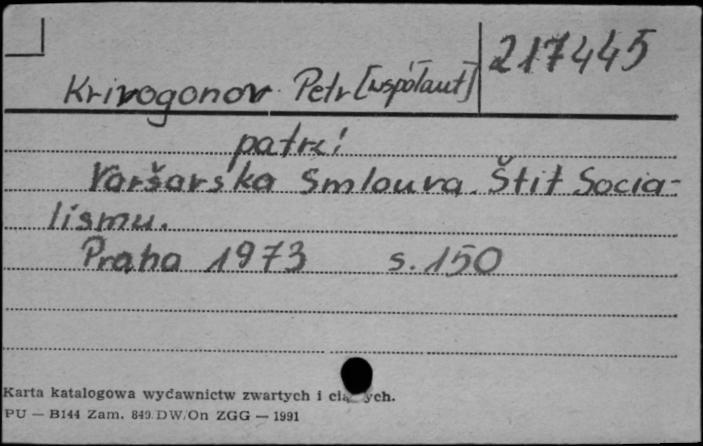 217445
Krivogonov Petr [współaut]
patrz:
Varšavska Smlouva. Štit Socia-
lismu.
Praha 1973 s. 150
Karta katalogowa wydawnictw zwartych i
PU — B144 Zam. 849. DW/On ZGG — 1991